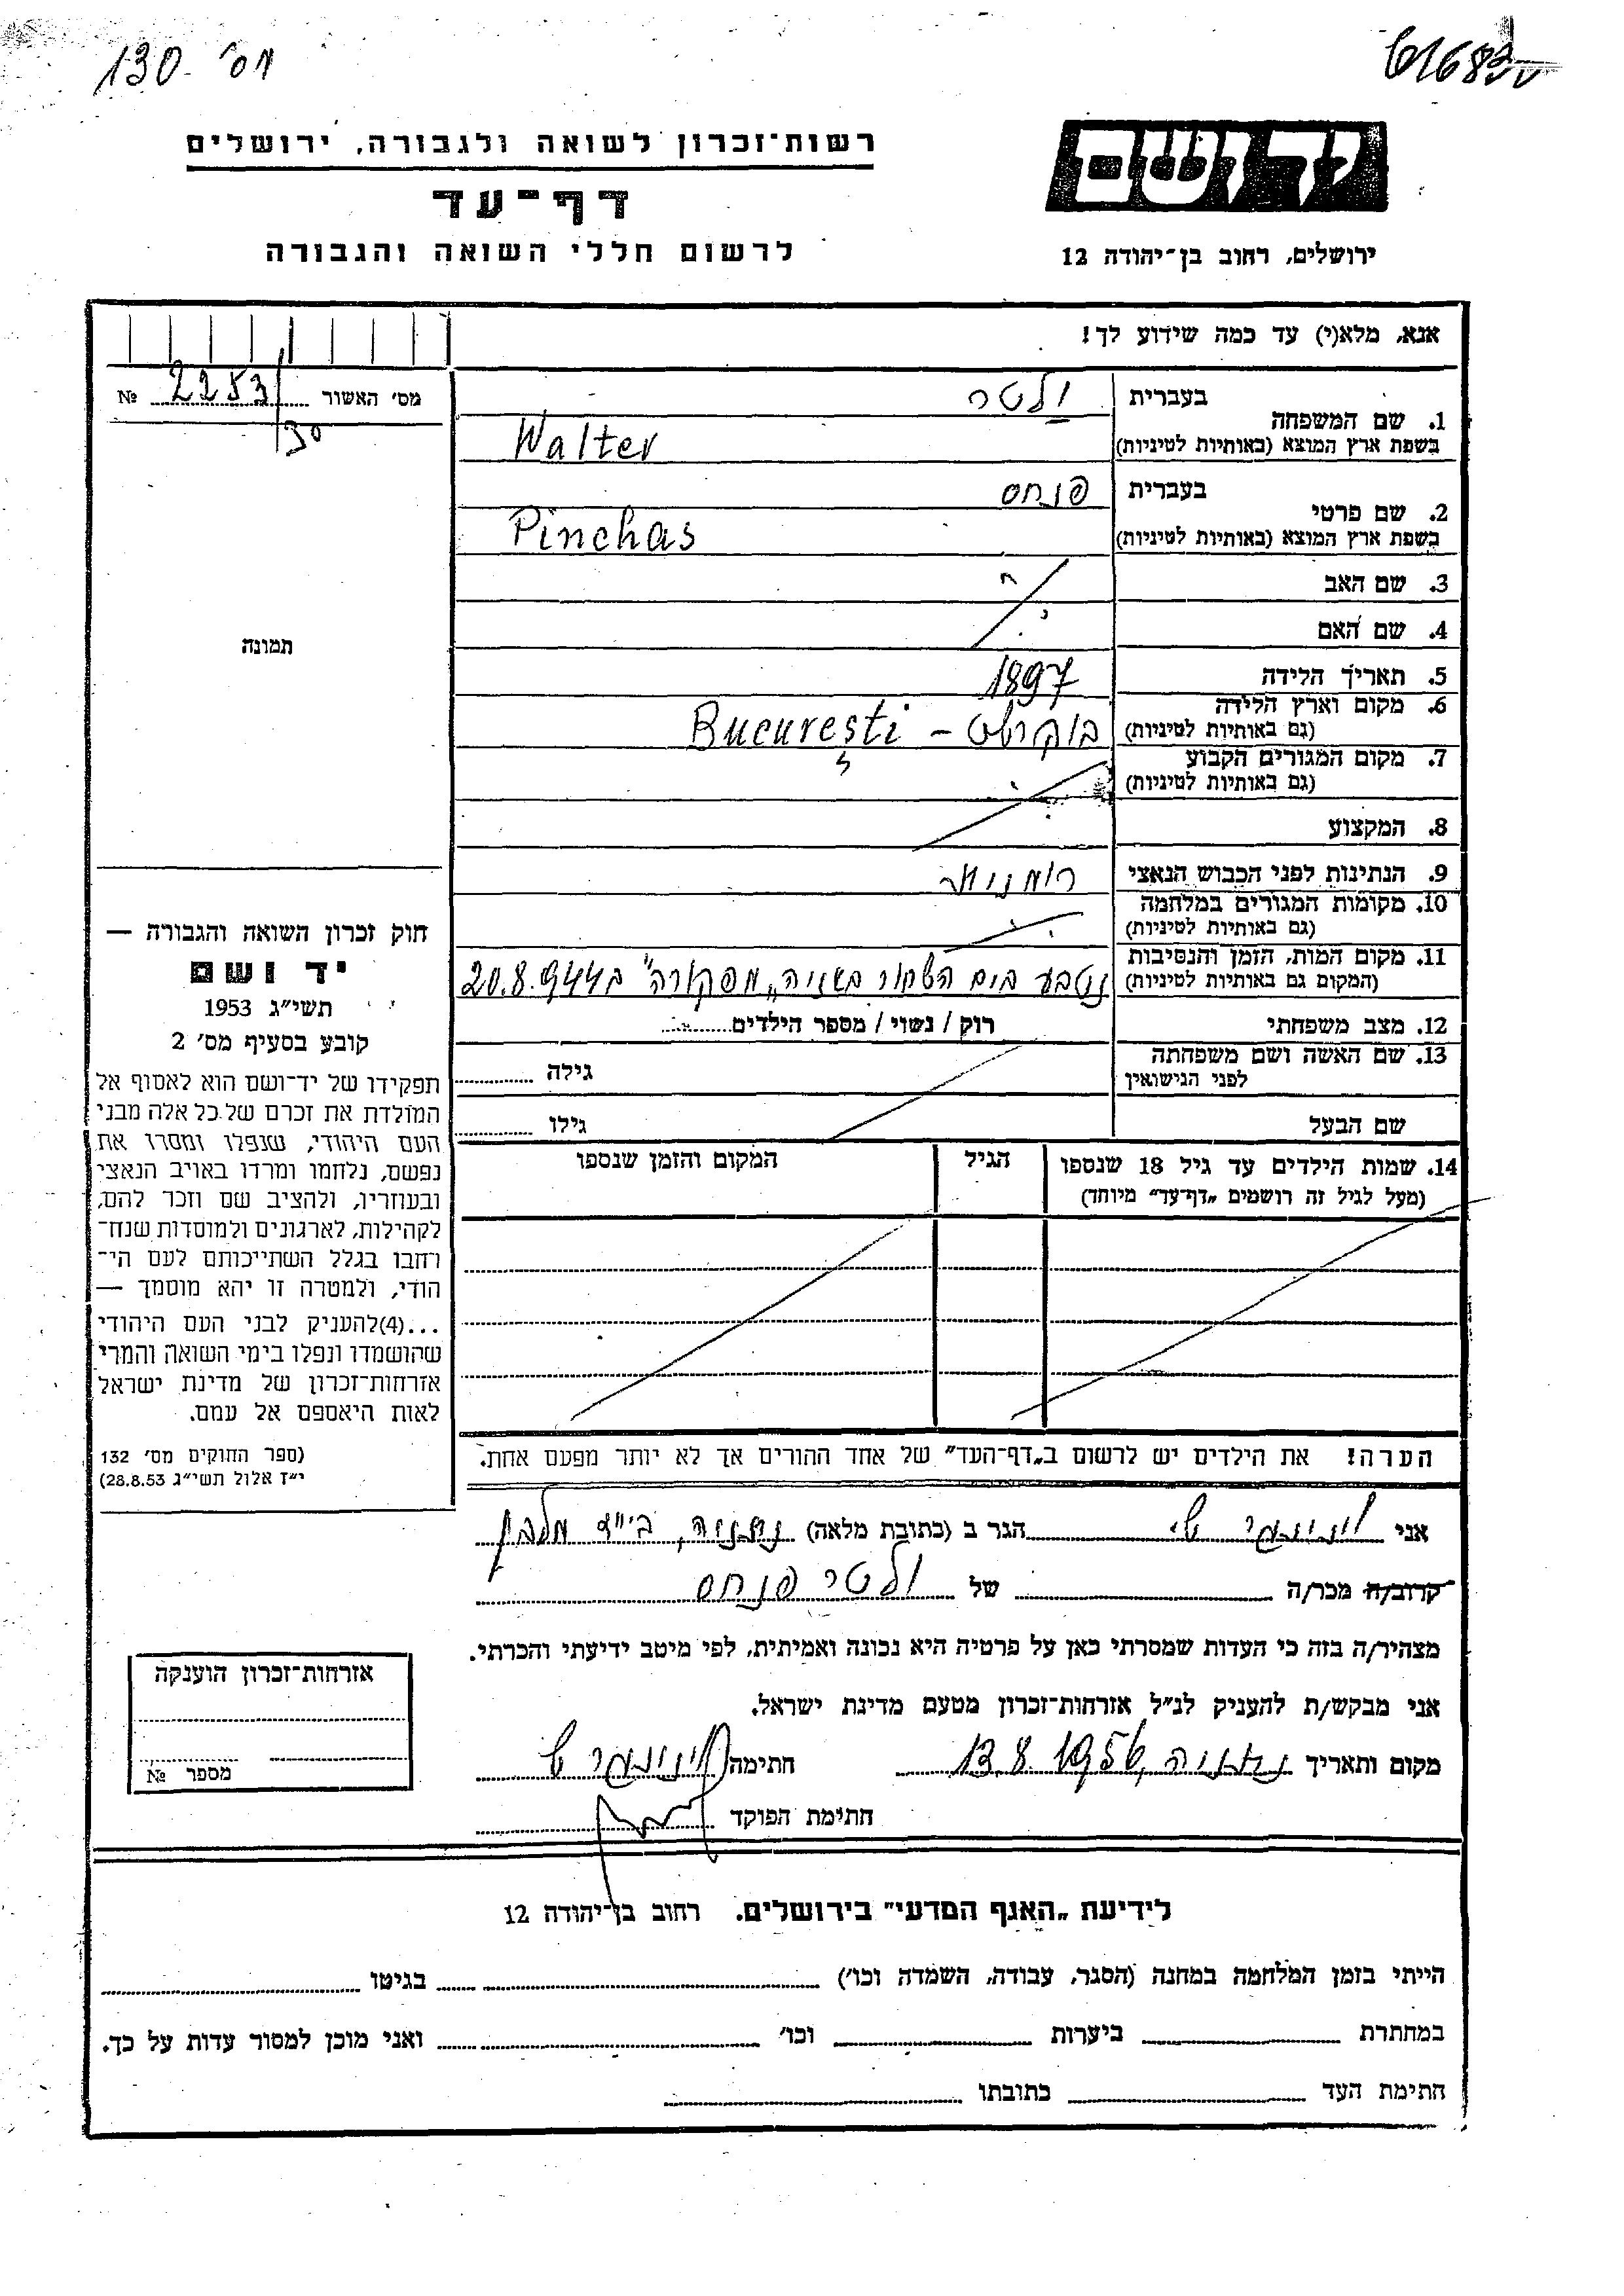 מס' 130
616832
רשות־זכרון לשואה ולגבורה, ירושלים
דף־עד
לרשום חללי השואה והגבורה
ידושם
ירושלים, רחוב בן־יהודה 12
אנא, מלא(י) עד כמה שידוע לך!
מס' האשור 2253/30 №
תמונה
1. שם המשפחה
בעברית ולטר
בשפת ארץ המוצא (באותיות לטיניות) Walter
2. שם פרטי
בעברית פנחס
בשפת ארץ המוצא (באותיות לטיניות) Pinchas
3. שם האב
4. שם האם
5. תאריך הלידה 1897
6. מקום וארץ הלידה
(גם באותיות לטיניות) בוקרשט - Bucureşti
7. מקום המגורים הקבוע
(גם באותיות לטיניות)
8. המקצוע
9. הנתינות לפני הכבוש הנאצי רומנית
10. מקומות המגורים במלחמה
(גם באותיות לטיניות)
11. מקום המות, הזמן והנסיבות
(המקום גם באותיות לטיניות) נטבע בים השחור בשניה „מפקורה" ב 20.8.944
12. מצב משפחתי רוק / נשוי / מספר הילדים
13. שם האשה ושם משפחתה
לפני הנישואין גילה
שם הבעל גילו
14. שמות הילדים עד גיל 18 שנספו
(מעל לגיל זה רושמים „דף־עד" מיוחד)
הגיל
המקום והזמן שנספו
הערה! את הילדים יש לרשום ב„דף־העד" של אחד ההורים אך לא יותר מפעם אחת.
חוק זכרון השואה והגבורה —
יד ושם
תשי"ג 1953
קובע בסעיף מס' 2
תפקידו של יד־ושם הוא לאסוף אל
המולדת את זכרם של כל אלה מבני
העם היהודי, שנפלו ומסרו את
נפשם, נלחמו ומרדו באויב הנאצי
ובעוזריו, ולהציב שם וזכר להם,
לקהילות, לארגונים ולמוסדות שנח־
רחבו בגלל השתייכותם לעם הי־
הודי, ולמטרה זו יהא מוסמך —
...(4)להעניק לבני העם היהודי
שהושמדו ונפלו בימי השואה והמרי
אזרחות־זכרון של מדינת ישראל
לאות היאספם אל עמם.
(ספר החוקים מס' 132
י"ז אלול תשי"ג 28.8.53)
אני הגר ב (כתובת מלאה) נתניה, בי"ח מלבן
קרוב/ה מכר/ה של ולטר פנחס
מצהיר/ה בזה כי העדות שמסרתי כאן על פרטיה היא נכונה ואמיתית, לפי מיטב ידיעתי והכרתי.
אני מבקש/ת להעניק לנ"ל אזרחות־זכרון מטעם מדינת ישראל.
מקום ותאריך נתניה, 13.8.1956 חתימה
חתימת הפוקד
אזרחות־זכרון הוענקה
מספר №
לידיעת „האגף המדעי" בירושלים. רחוב בן־יהודה 12
הייתי בזמן המלחמה במחנה (הסגר, עבודה, השמדה וכו') בגיטו
במחתרת ביערות וכו' ואני מוכן למסור עדות על כך.
חתימת העד כתובתו